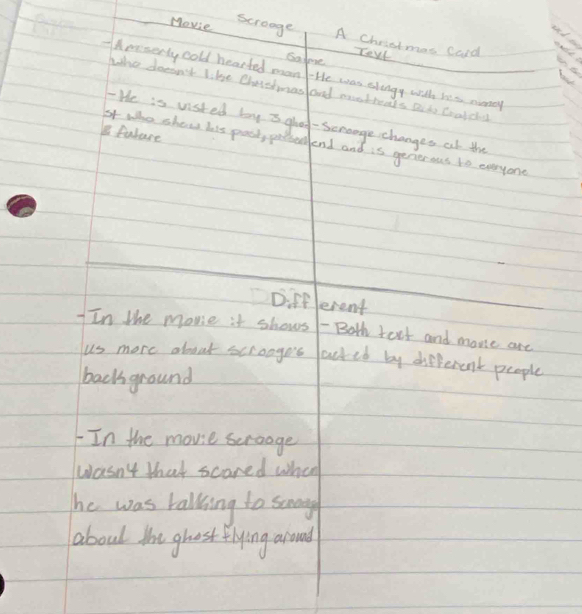 Movie Scrooge A Christmas Card
Text
Same
- A miserly cold hearted man
who doesn't like Christmas
- He was stingy with his money
and
- He is visted by 3 ghos
st who show his past,
& future
- Scrooge changes at the
end and is generous to everyone
Different
- In the movie it shows
us more about scrooge's
background
- Both text and movie are
acted by different people
- In the movie scrooge
wasn't that scared when
he was talking to Scroog
about the ghost flying around